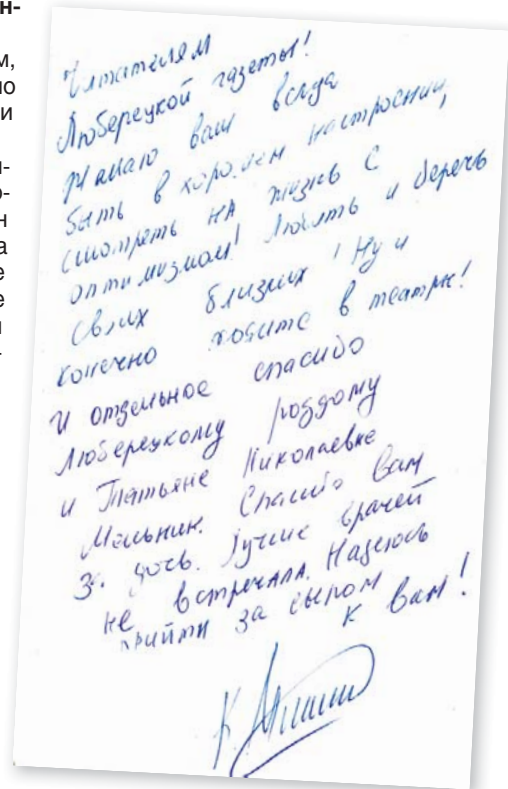 н-
м,
но
и
и-
о-
н
а
е
е
и
-
Читателям
Люберецкой газеты!
Желаю вам всегда
быть в хорошем настроении,
смотреть на жизнь с
оптимизмом! Любить и беречь
своих близких! Ну и
конечно ходите в театры!
И отдельное спасибо
Люберецкому роддому
и Татьяне Николаевне
Мельник. Спасибо вам
за дочь. Лучше врачей
не встречала. Надеюсь
прийти за сыром к вам!
К.